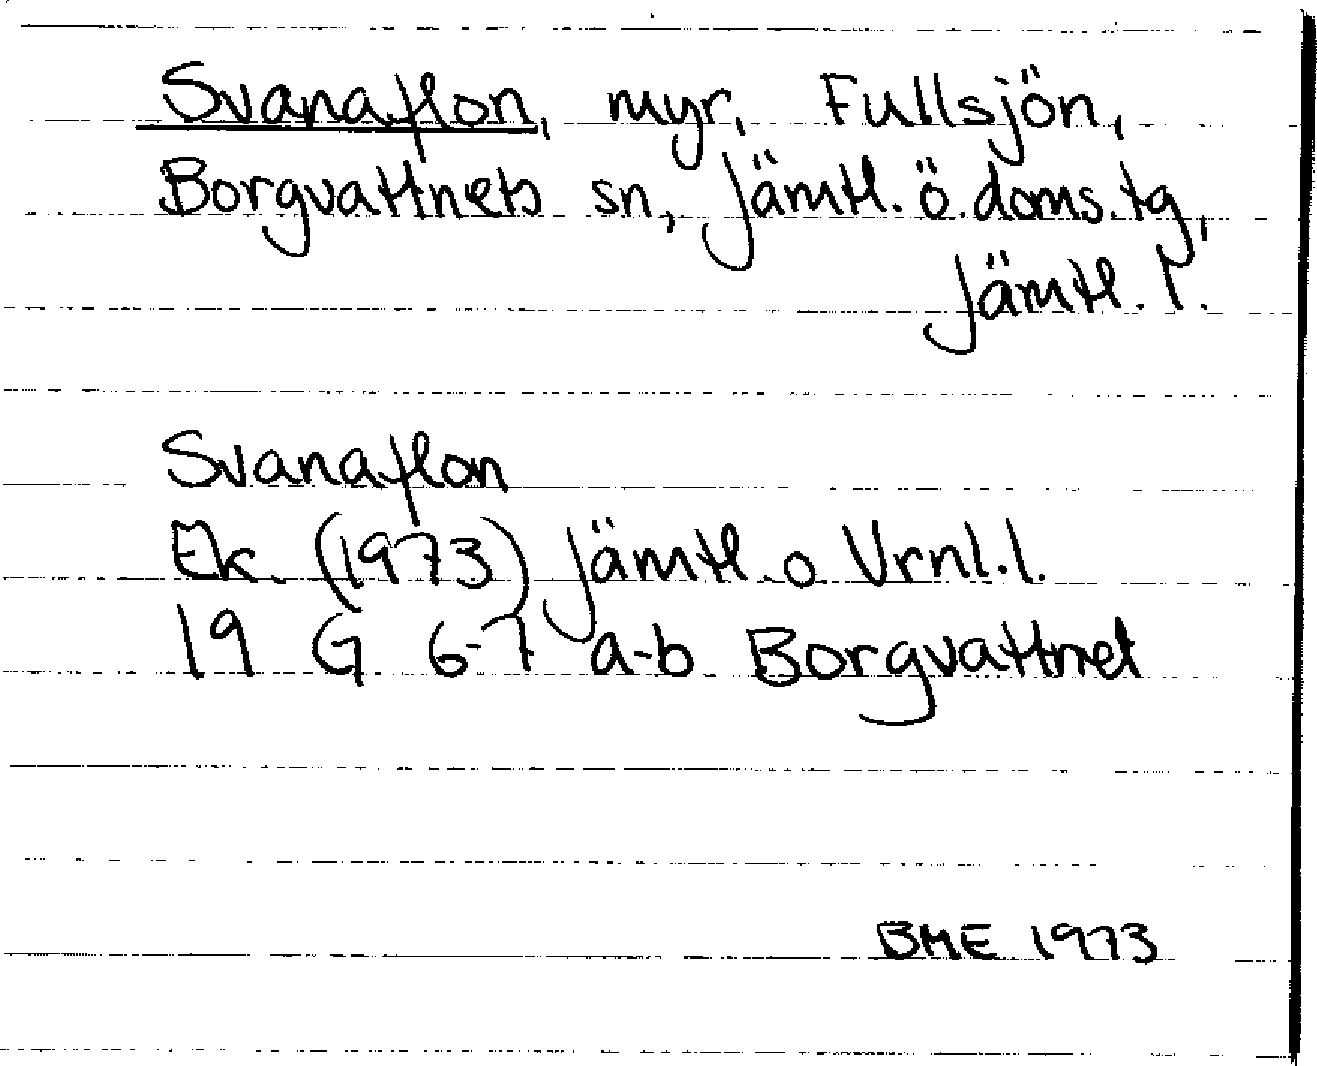 Svanaflon, myr, Fullsjön,
Borgvattnets sn, Jämtl. ö. doms.tg,
Jämtl. l.
Svanaflon
Ek. (1973) Jämtl. o Vrnl. l.
19 G 6-7 a-b Borgvattnet
BME 1973